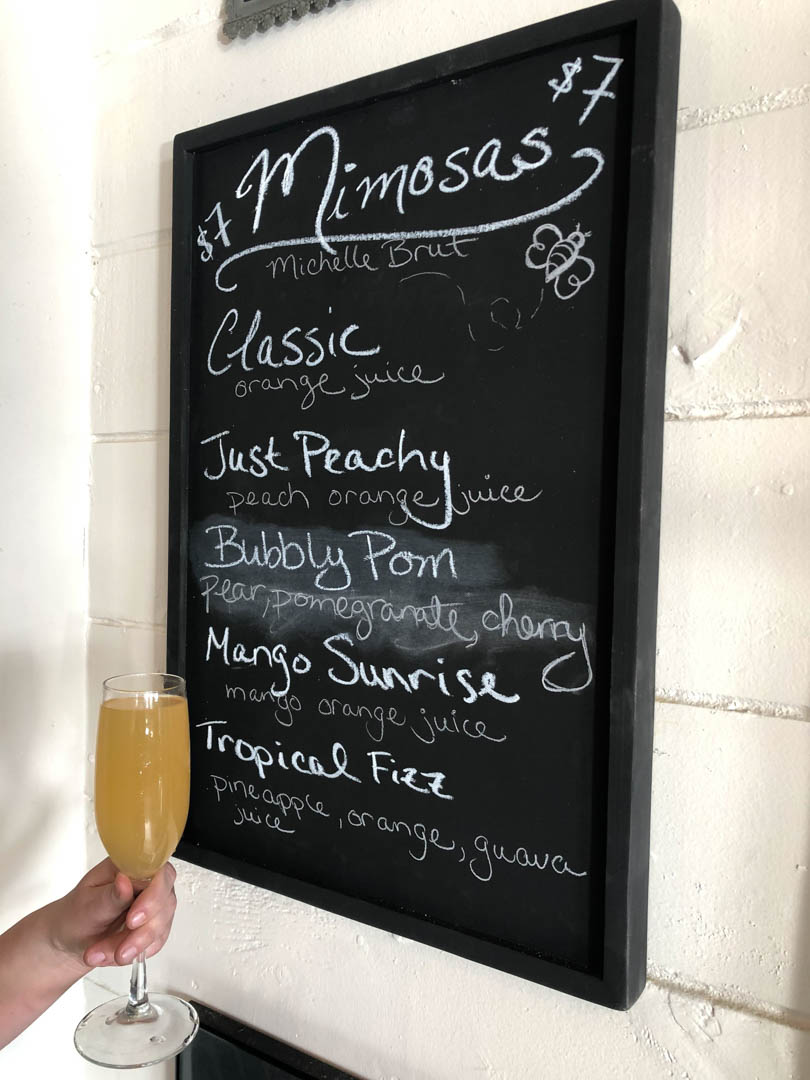 $7
$7 Mimosas
Michelle Brut
Classic
orange juice
Just Peachy
peach orange juice
Bubbly Pom
Pear, pomegranate, cherry
Mango Sunrise
mango orange juice
Tropical Fizz
pineapple, orange, guava
juice